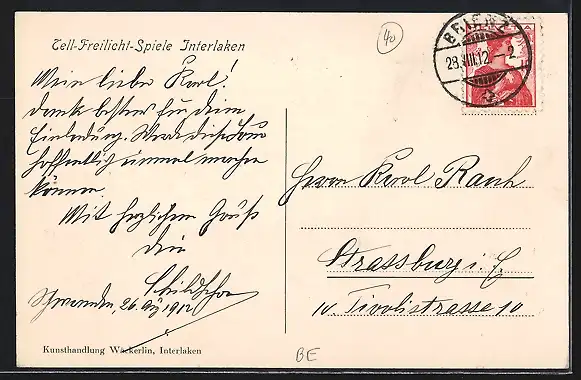 Tell-Freilicht-Spiele Interlaken
40
BRIENZ
28.VIII.12.–2
Mein lieber Karl!
danke bestens für deine
Einladung. Werde diese Tour
hoffentlich einmal machen
können.
Mit herzlichem Gruß
dein
26. Aug 1912
Herrn Karl Rauh
Strassburg i. E.
10. Tivolistrasse 10
Kunsthandlung Wäckerlin, Interlaken
BE